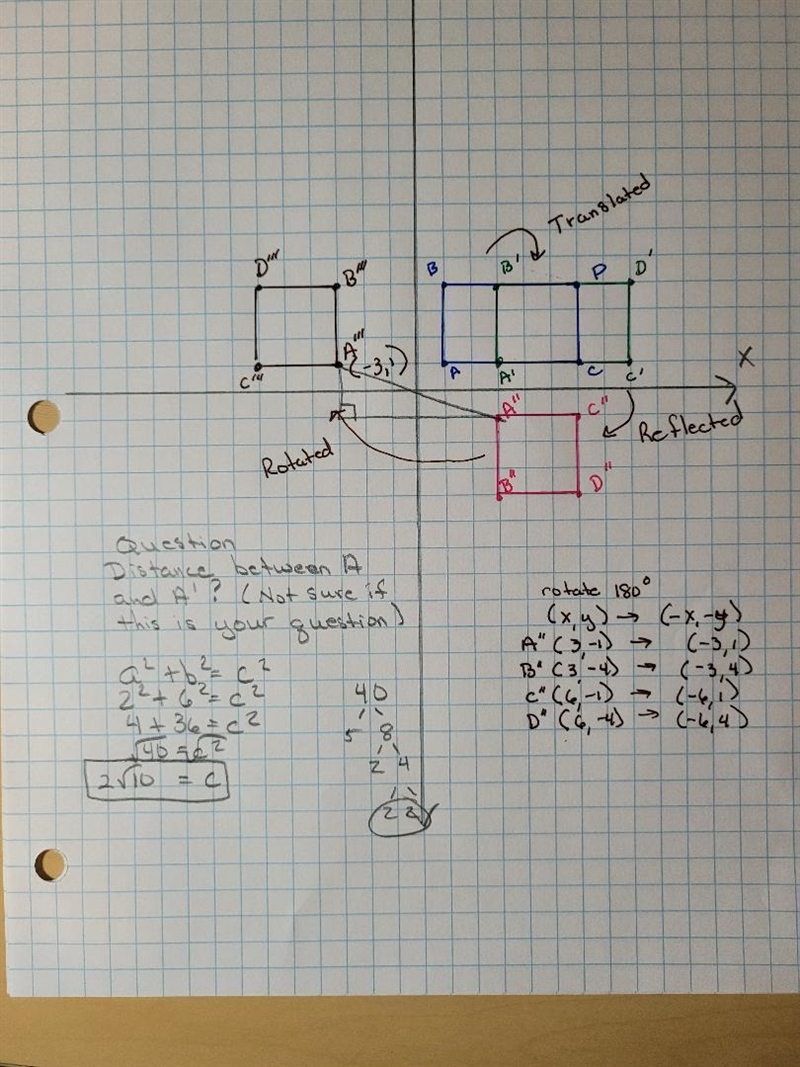 Translated
D''' B''' B B' P D'
A''' (-3,1)
C''' A A' C C' X
A'' C''
Reflected
Rotated
B'' D''
Question
Distance between A
and A'? (Not sure if
this is your question)
a² + b² = c²
2² + 6² = c²
4 + 36 = c²
√40 = √c²
2√10 = c
40
5 8
2 4
2 2
rotate 180°
(x,y) → (-x,-y)
A'' (3,-1) → (-3,1)
B'' (3,-4) → (-3,4)
C'' (6,-1) → (-6,1)
D'' (6,-4) → (-6,4)